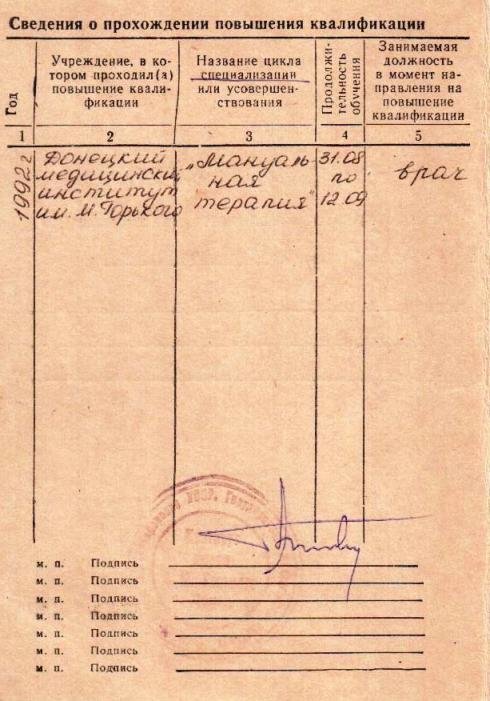 Сведения о прохождении повышения квалификации
Год
Учреждение, в ко-
тором проходил(а)
повышение квали-
фикации
Название цикла
специализации
или усовершен-
ствования
Продолжи-
тельность
обучения
Занимаемая
должность
в момент на-
правления на
повышение
квалификации
1 2 3 4 5
1992 г
Донецкий
медицинский
институт
им. М. Горького
„Мануаль
ная
терапия"
31.08
по
12.09
врач
м. п. Подпись
м. п. Подпись
м. п. Подпись
м. п. Подпись
м. п. Подпись
м. п. Подпись
м. п. Подпись